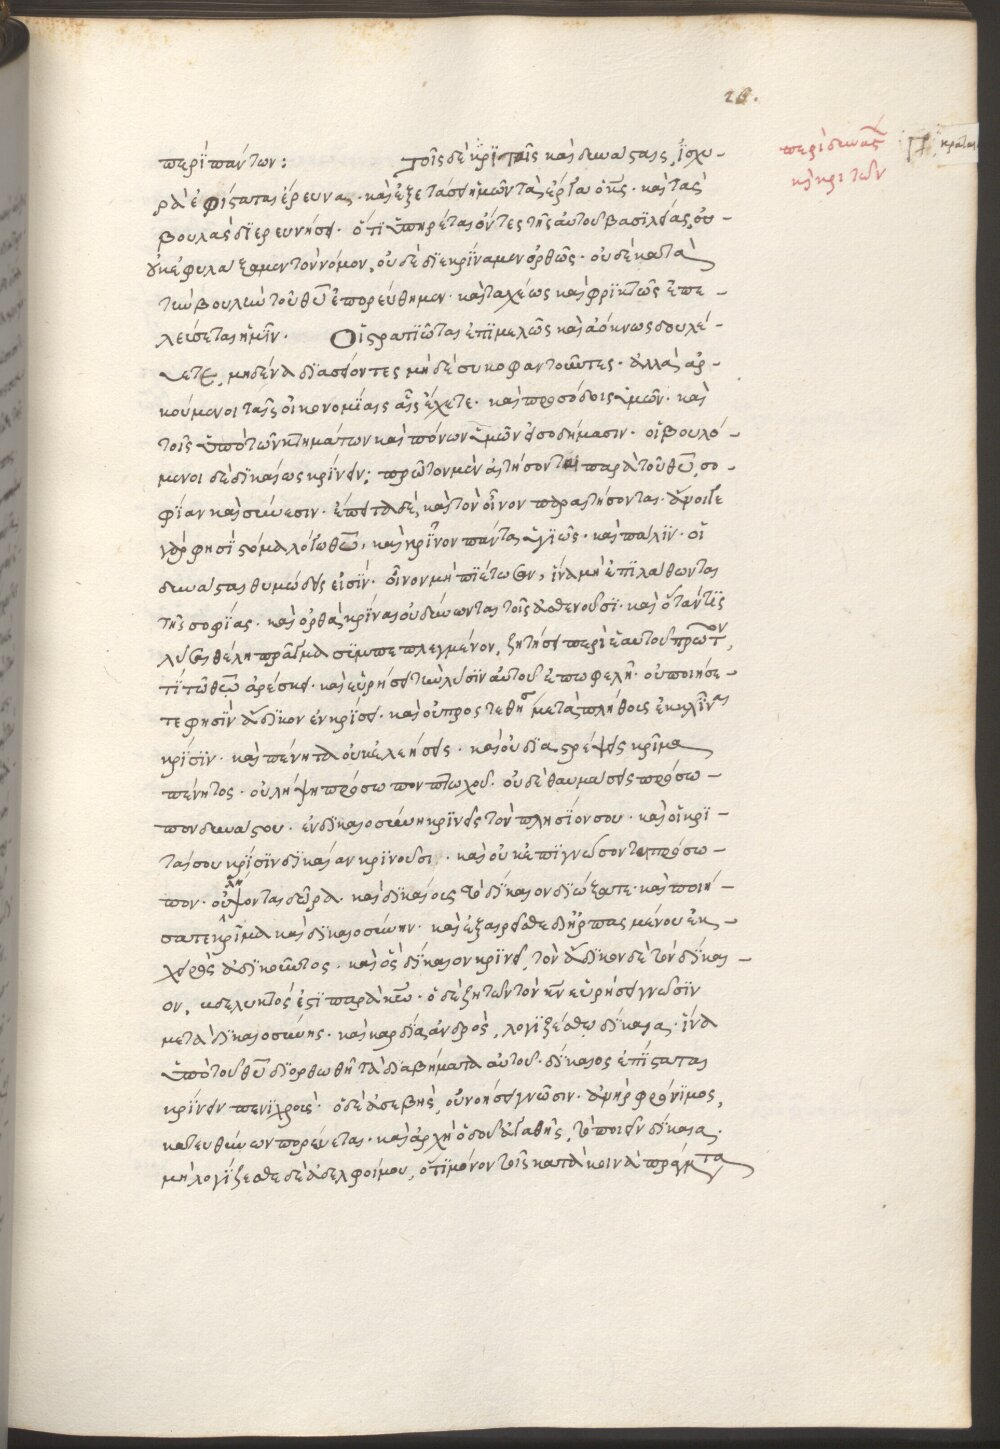 26.
περὶ πάντων: Τοῖς δὲ κριταῖς καὶ δυνάσταις, ἰσχυ-
ρὰ ἐφίσταται ἔρευνα. καὶ ἐξετάσει ἡμῶν τὰ ἔργα ὁ κς. καὶ τὰς
βουλὰς διερευνήσει. ὅτι ὑπηρέται ὄντες τῆς αὐτοῦ βασιλείας, ο
υκ ἐφυλάξαμεν τὸν νόμον, οὐδὲ διεκρίναμεν ὀρθῶς. οὐδὲ κατὰ
τὴν βουλὴν τοῦ θυ ἐπορεύθημεν. καὶ ταχέως καὶ φρικτῶς ἐπε-
λεύσεται ἡμῖν. Οἱ στρατιῶται ἐπιμελῶς καὶ ἀόκνως δουλεύ-
ετε, μηδένα διασείοντες μηδὲ συκοφαντοῦντες. ἀλλὰ ἀρ-
κούμενοι ταῖς οἰκονομίαις αἷς ἔχετε. καὶ προσόδοις ὑμῶν. καὶ
τοῖς ὑπὸ τῶν κτημάτων καὶ πόνων ὑμῶν εἰσοδήμασιν. οἱ βουλό-
μενοι δὲ δικαίως κρίνειν; πρῶτον μὲν αἰτήσονται παρὰ τοῦ θυ, σο-
φίαν καὶ σύνεσιν. ἔπειτα δὲ, καὶ τὸν οἶνον παραιτήσονται. ἄνοιγε
γάρ φησὶ στόμα λόγω θεοῦ, καὶ κρῖνον πάντα ὑγιῶς. καὶ πάλιν. οἱ
δυνάσται θυμώδεις εἰσίν. οἶνον μὴ πιέτωσαν, ἵνα μὴ ἐπιλάθωνται
τῆς σοφίας. καὶ ὀρθὰ κρίναι οὐ δύνωνται τοῖς ἀσθενοῦσι. καὶ ὅταν τίς
λύσαι θέλη πρᾶγμα συμπεπλεγμένον, ζητήσει περὶ ἑαυτοῦ πρῶτον,
τί τῶ θεῶ ἀρέσκει. καὶ εὑρήσει τὴν λύσιν αὐτοῦ ἐπωφελῆ. οὐ ποιήσε-
τε φησὶν ἄδικον ἐν κρίσει. καὶ οὐ προστεθήση μετὰ πλήθους ἐκκλῖναι
κρίσιν. καὶ πένητα οὐκ ἐλεήσεις. καὶ οὐ διαστρέψεις κρῖμα
πένητος. οὐ λήψη πρόσωπον πτωχοῦ. οὐδὲ θαυμάσεις πρόσω-
πον δυνάστου. ἐν δικαιοσύνη κρινεῖς τὸν πλησίον σου. καὶ οἱ κρι-
ταί σου κρίσιν δικαίαν κρινοῦσι. καὶ οὐκ ἐπιγνώσονται πρόσω-
πον. οὐ λήψονται δῶρα. καὶ δικαίοις τὸ δίκαιον διώξατε. καὶ ποιή-
σατε κρῖμα καὶ δικαιοσύνην. καὶ ἐξαιρεῖσθε διηρπασμένου ἐκ
χειρὸς ἀδικοῦντος. καὶ ὃς δίκαιον κρίνει, τὸν ἄδικον δὲ τὸν δίκαι-
ον, βδελυκτός ἐστι παρὰ κυ. ὁ δὲ ζητῶν τὸν κν εὑρήσει γνῶσιν
μετὰ δικαιοσύνης. καὶ καρδία ἀνδρὸς, λογιζέσθω δίκαια. ἵνα
ὑπὸ τοῦ θυ διορθωθῆ τὰ διαβήματα αὐτοῦ. δίκαιος ἐπίσταται
κρίνειν πενιχροῖς. ὁ δὲ ἀσεβὴς, οὐ νοήσει γνῶσιν. ἀνὴρ φρόνιμος,
κατευθύνων πορεύεται. καὶ ἀρχὴ ὁδοῦ ἀγαθῆς, τὸ ποιεῖν δίκαια.
μὴ λογίζεσθε δὲ ἀδελφοί μου, ὅτι μόνον τοῖς κατὰ κοινὰ πράγματα
περὶ δυνας
κ κριτῶν